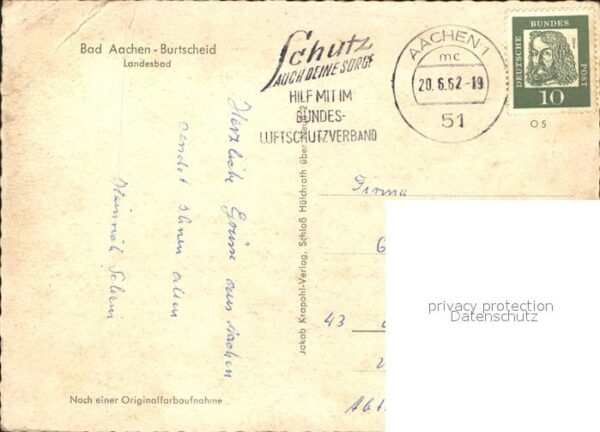 Bad Aachen - Burtscheid
Landesbad
Schutz
AUCH DEINE SORGE
HILF MIT IM
BUNDES-
LUFTSCHUTZVERBAND
AACHEN 1
mc
20.6.62-19
51
DEUTSCHE BUNDES POST
10
05
Herzliche Grüsse aus Aachen
sendet Ihnen allen
Heinrich
Jakob Krapohl-Verlag, Schloß Hülchrath über Neuss 2
Firma
G
43
Abt
privacy protection
Datenschutz
Nach einer Originalfarbaufnahme